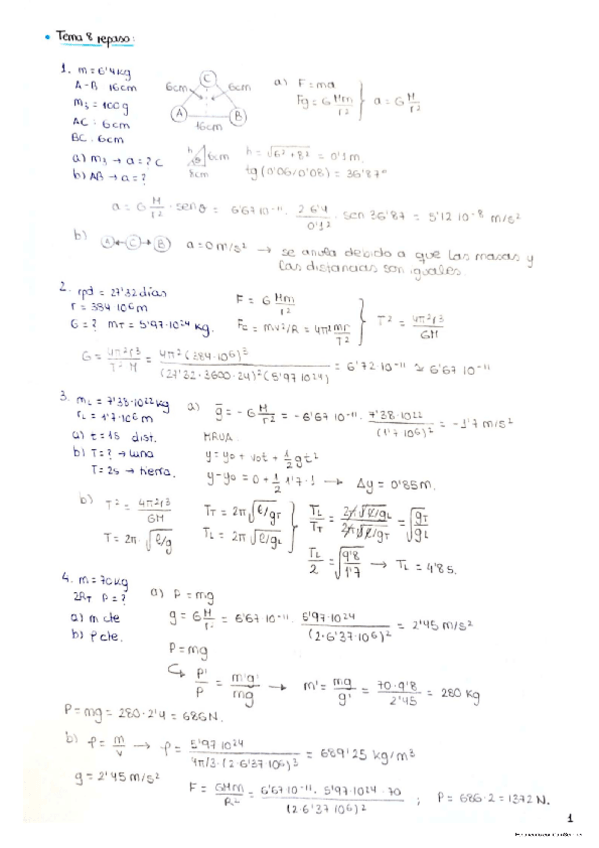 • Tema 8 repaso:
1. m = 6'4 kg
A-B 16cm
m₃ = 100g
AC: 6cm
BC: 6cm
a) m₃ → a = ? C
b) AB → a = ?
C
6cm 6cm
A B
16cm
a) F = ma
Fg = G Mm/r² } a = G M/r²
h 6cm
8cm
h = √6²+8² = 0'1m.
tg(0'06/0'08) = 36'87º
a = G M/r² · senθ = 6'67 10⁻¹¹ · 2 6'4/0'1² · sen 36'87 = 5'12 10⁻⁸ m/s²
b) A ← C → B a = 0 m/s² → se anula debido a que las masas y
las distancias son iguales.
2. rpd = 27'32 días
r = 384 10⁶ m
G = ? mT = 5'97·10²⁴ kg.
F = G Mm/r²
Fc = mv²/R = 4π² mr/T² } T² = 4π²r³/GM
G = 4π²r³/T² M = 4π²(384·10⁶)³/(27'32·3600·24)²(5'97 10²⁴) = 6'72 10⁻¹¹ ≃ 6'67 10⁻¹¹
3. mL = 7'38·10²² kg
rL = 1'7·10⁶ m
a) t = 1s dist.
b) T = ? → luna
T = 2s → tierra.
a) g = - G M/r² = - 6'67 10⁻¹¹ · 7'38·10²²/(1'7 10⁶)² = -1'7 m/s²
MRUA.
y = y₀ + v₀t + 1/2 gt²
y-y₀ = 0 + 1/2 1'7·1 → Δy = 0'85m.
b) T² = 4π²r³/GM
T = 2π·√l/g
TT = 2π√l/gT
TL = 2π√l/gL } TL/TT = 2π√l/gL / 2π√l/gT = √gT/gL
TL/2 = √9'8/1'7 → TL = 4'8s.
4. m = 70 kg
2RT P = ?
a) m cte
b) ρ cte.
a) P = mg
g = G M/r² = 6'67 10⁻¹¹ · 5'97·10²⁴/(2·6'37·10⁶)² = 2'45 m/s²
P = mg
↳ P'/P = m'g'/mg → m' = mg/g' = 70·9'8/2'45 = 280 kg
P = mg = 280·2'4 = 686N.
b) ρ = m/v → ρ = 5'97 10²⁴/4π/3·(2·6'37 10⁶)³ = 689'25 kg/m³
g = 2'45 m/s²
F = GMm/R² = 6'67 10⁻¹¹ · 5'97·10²⁴ · 70/(2·6'37 10⁶)² ; P = 686·2 = 1372 N.
1